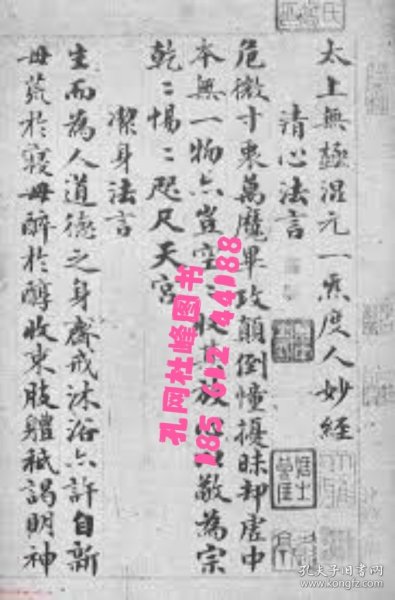 太上無極混元一炁度人妙經
清心法言
危微寸衷萬魔畢攻顛倒憧擾昧却虛中
本無一物六豈空收放心以敬為宗
乾〻惕〻咫尺天宮
潔身法言
生而為人道德之身齋戒沐浴六許自新
毋荒於寢毋醉於醇收束肢體祗謁明神
孔网社峰图书
185 612 44188
孔夫子旧书网
www.kongfz.com